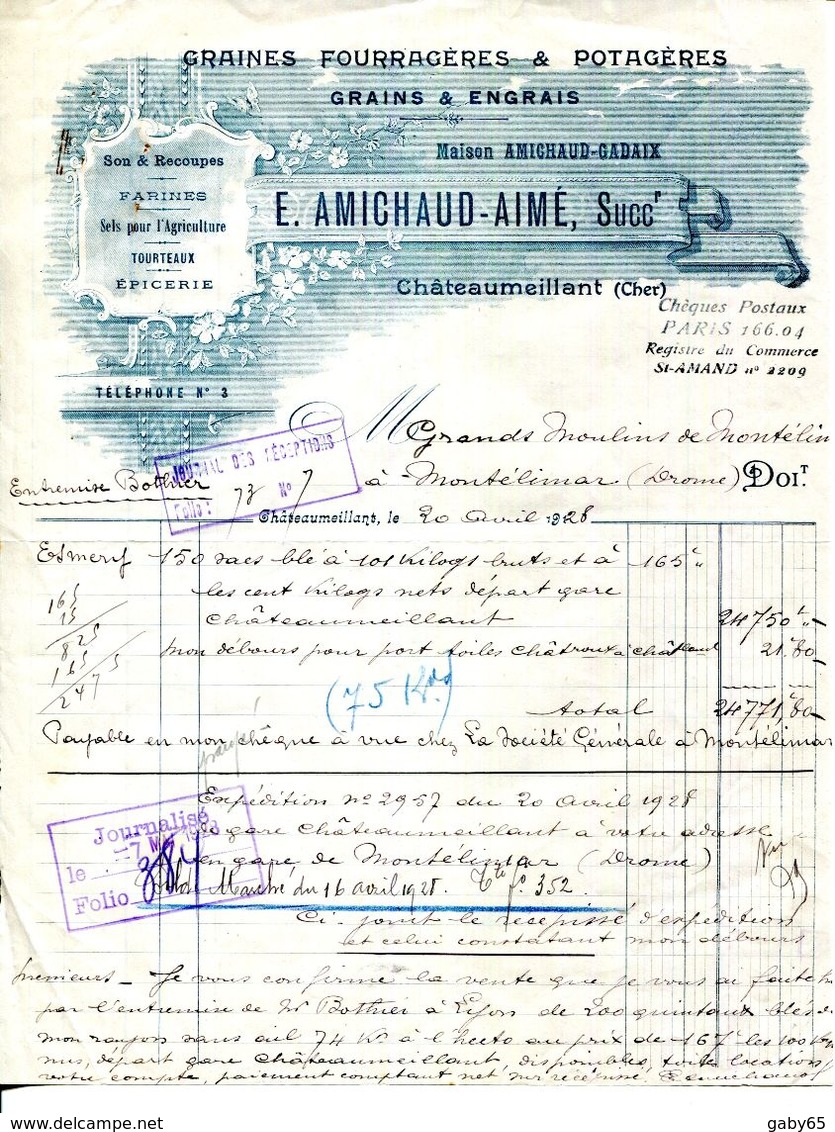 GRAINES FOURRAGÈRES & POTAGÈRES
GRAINS & ENGRAIS
Maison AMICHAUD-GADAIX
E. AMICHAUD-AIMÉ, Succr
Châteaumeillant (Cher)
Son & Recoupes
FARINES
Sels pour l'Agriculture
TOURTEAUX
ÉPICERIE
TÉLÉPHONE N° 3
Chèques Postaux
PARIS 166.04
Registre du Commerce
St-AMAND n° 2209
M Grands Moulins de Montélim
à Montélimar (Drome) DOIT
JOURNAL DES RÉCEPTIONS
Folio : 73 N° 7
Entremise Bothier
Châteaumeillant, le 20 avril 1928
150 sacs blé à 101 Kilogs bruts et à 165f "
les cent Kilogs nets départ gare
Châteaumeillant 24750f "
165
15
825
165
2475
mon débours pour port toiles Châtroux à Châtlant 21f.80
(75 Kos)
total 24771f,80
Payable en mon chèque à vue chez La Société Générale à Montélimar
Expédition n° 2957 du 20 avril 1928
de gare Châteaumeillant à votre adresse
en gare de Montélimar (Drome)
Journalisé
le 7 1928
Folio 384
Marché du 16 avril 1928. 352
Ci-joint le récépissé d'expédition
et celui constatant mon débours
Messieurs - Je vous confirme la vente que je vous ai faite
par l'entremise de Mr Bothier à Lyon de 200 quintaux blés de
mon rayon sans ail 74 Ks à l'hecto au prix de 167f les 100 K
nus, départ gare Châteaumeillant, disponibles, toile location
votre compte, paiement comptant net, sur récépissé.
delcampe.net
gaby65